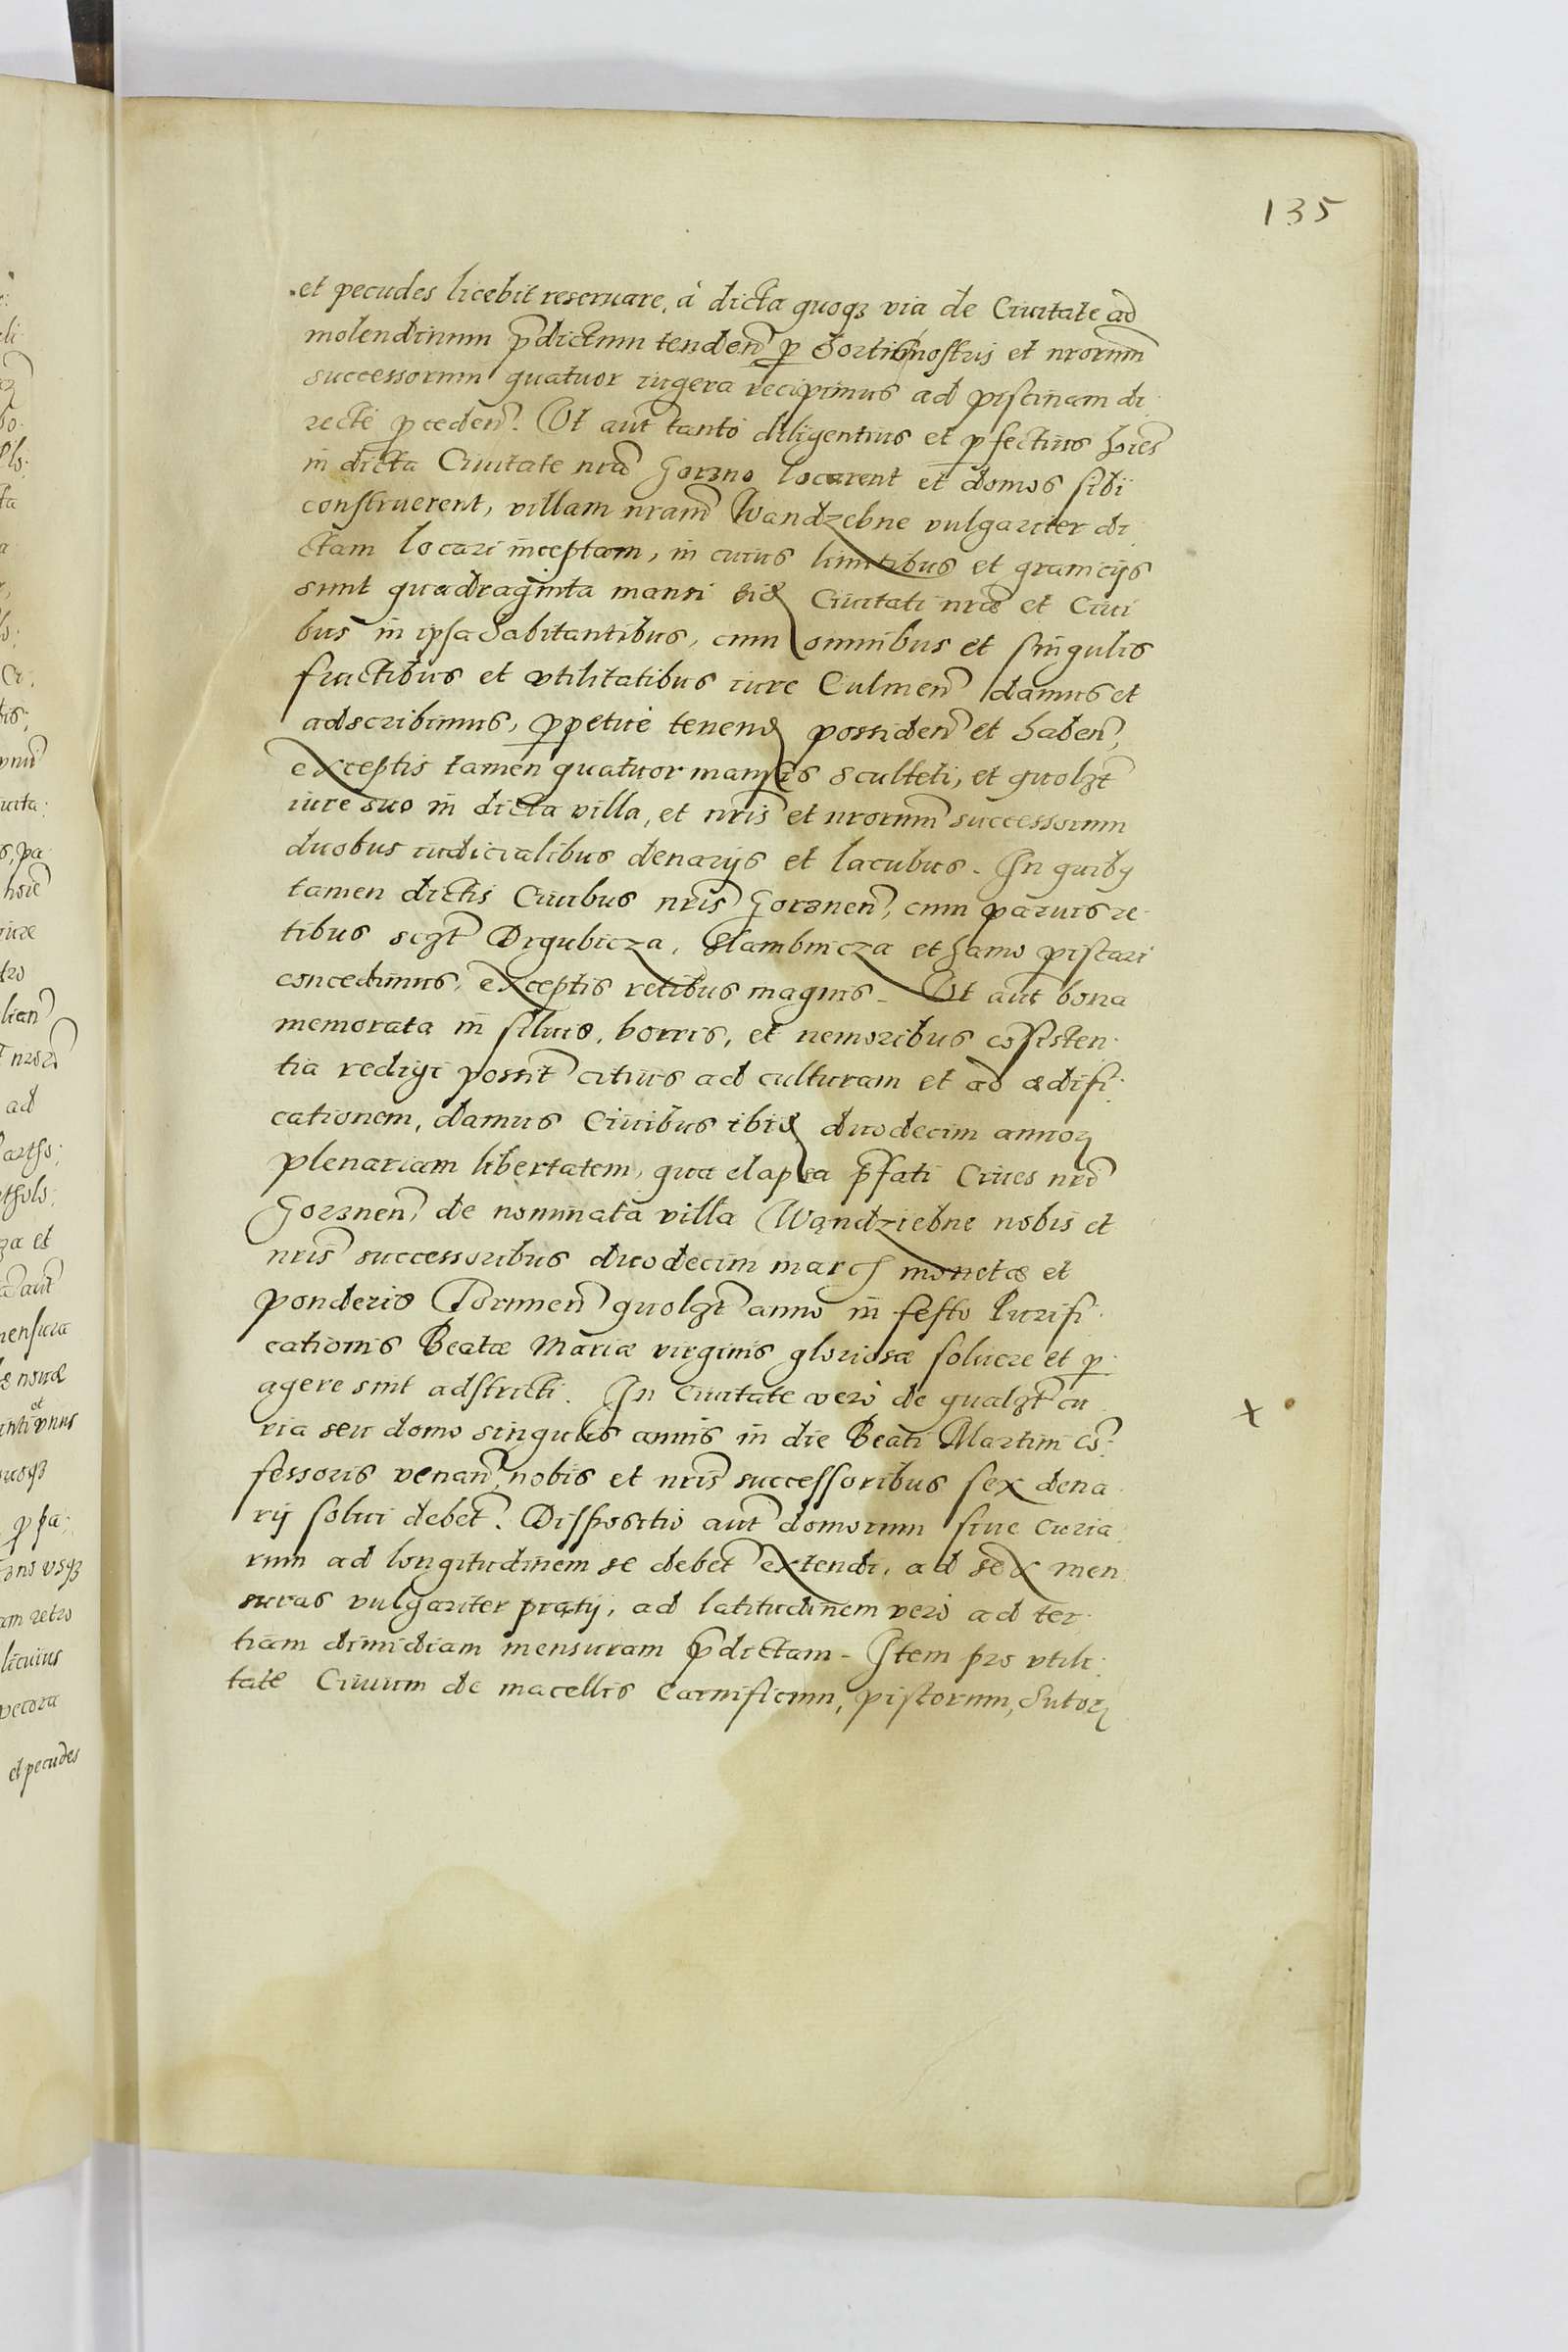 135
et pecudes licebit reseruare, à dicta quoqȝ via de Ciuitate ad
molendinum p̃dictum tendeñ p hortis nostris et nrorum̃
successorum quatuor iugera recipimus ad piscinam di
rectè p̱cedeñ. Vt aut̃ tantò diligentius et pfectius hoĩes
in dicta Ciuitate nr̃a Gorzno locarent et domos sibi
construerent, villam nram̃ Wandzebne vulgariter di
ctam locari inceptam, in cuius limitibus et granicijs
sunt quadraginta mansi eid Ciuitati nr̃æ et Ciui
bus in ipsa habitantibus, cum omnibus et singulis
fructibus et vtilitatibus iure Culmeñ damus et
adscribimus, ppetuè tenend possideñ et habeñ,
exceptis tamen quatuor mansis sculteti, et quolȝt̃
iure suo in dicta villa, et nris̃ et nrorum̃ successorum
duobus iudicialibus denarijs et lacubus. In quibꝫ
tamen dictis Ciuibus nris̃ Gorzneñ, cum paruis re
tibus scȝt̃ Drgubicza, Slambnicza et hamo piscari
concedimus, exceptis retibus magnis. Vt aut̃ bona
memorata in siluis, borris, et nemoribus cõsisten
tia redigi possit̃ citius ad culturam et ad ædifi
cationem, damus Ciuibus ibid duodecim annoꝝ
plenariam libertatem, qua elapsa p̃fati Ciues nr̃i
Gorzneñ, de nominata villa Wandziebne nobis et
nris̃ successoribus duodecim marc monetæ et
ponderis Torunneñ quolȝt̃ anno in festo Purifi
cationis Beatæ Mariæ virginis gloriosæ soluere et p
agere sint adstricti. In Ciuitate verò de qualȝt̃ cu
x
ria seu domo singulis annis in die Beati Martini cõ
fessoris venañ, nobis et nris̃ successoribus sex dena
rij solui debet̃. Dispositio aut̃ domorum siue Curia
rum ad longitudinem se debet̃ extendi, ad sex men
suras vulgariter prątij, ad latitudinem verò ad ter
tiam dimidiam mensuram p̃dictam. Item pro vtili
tate Ciuium de macellis Carnificum, pistorum, Sutoꝝ
et pecudes